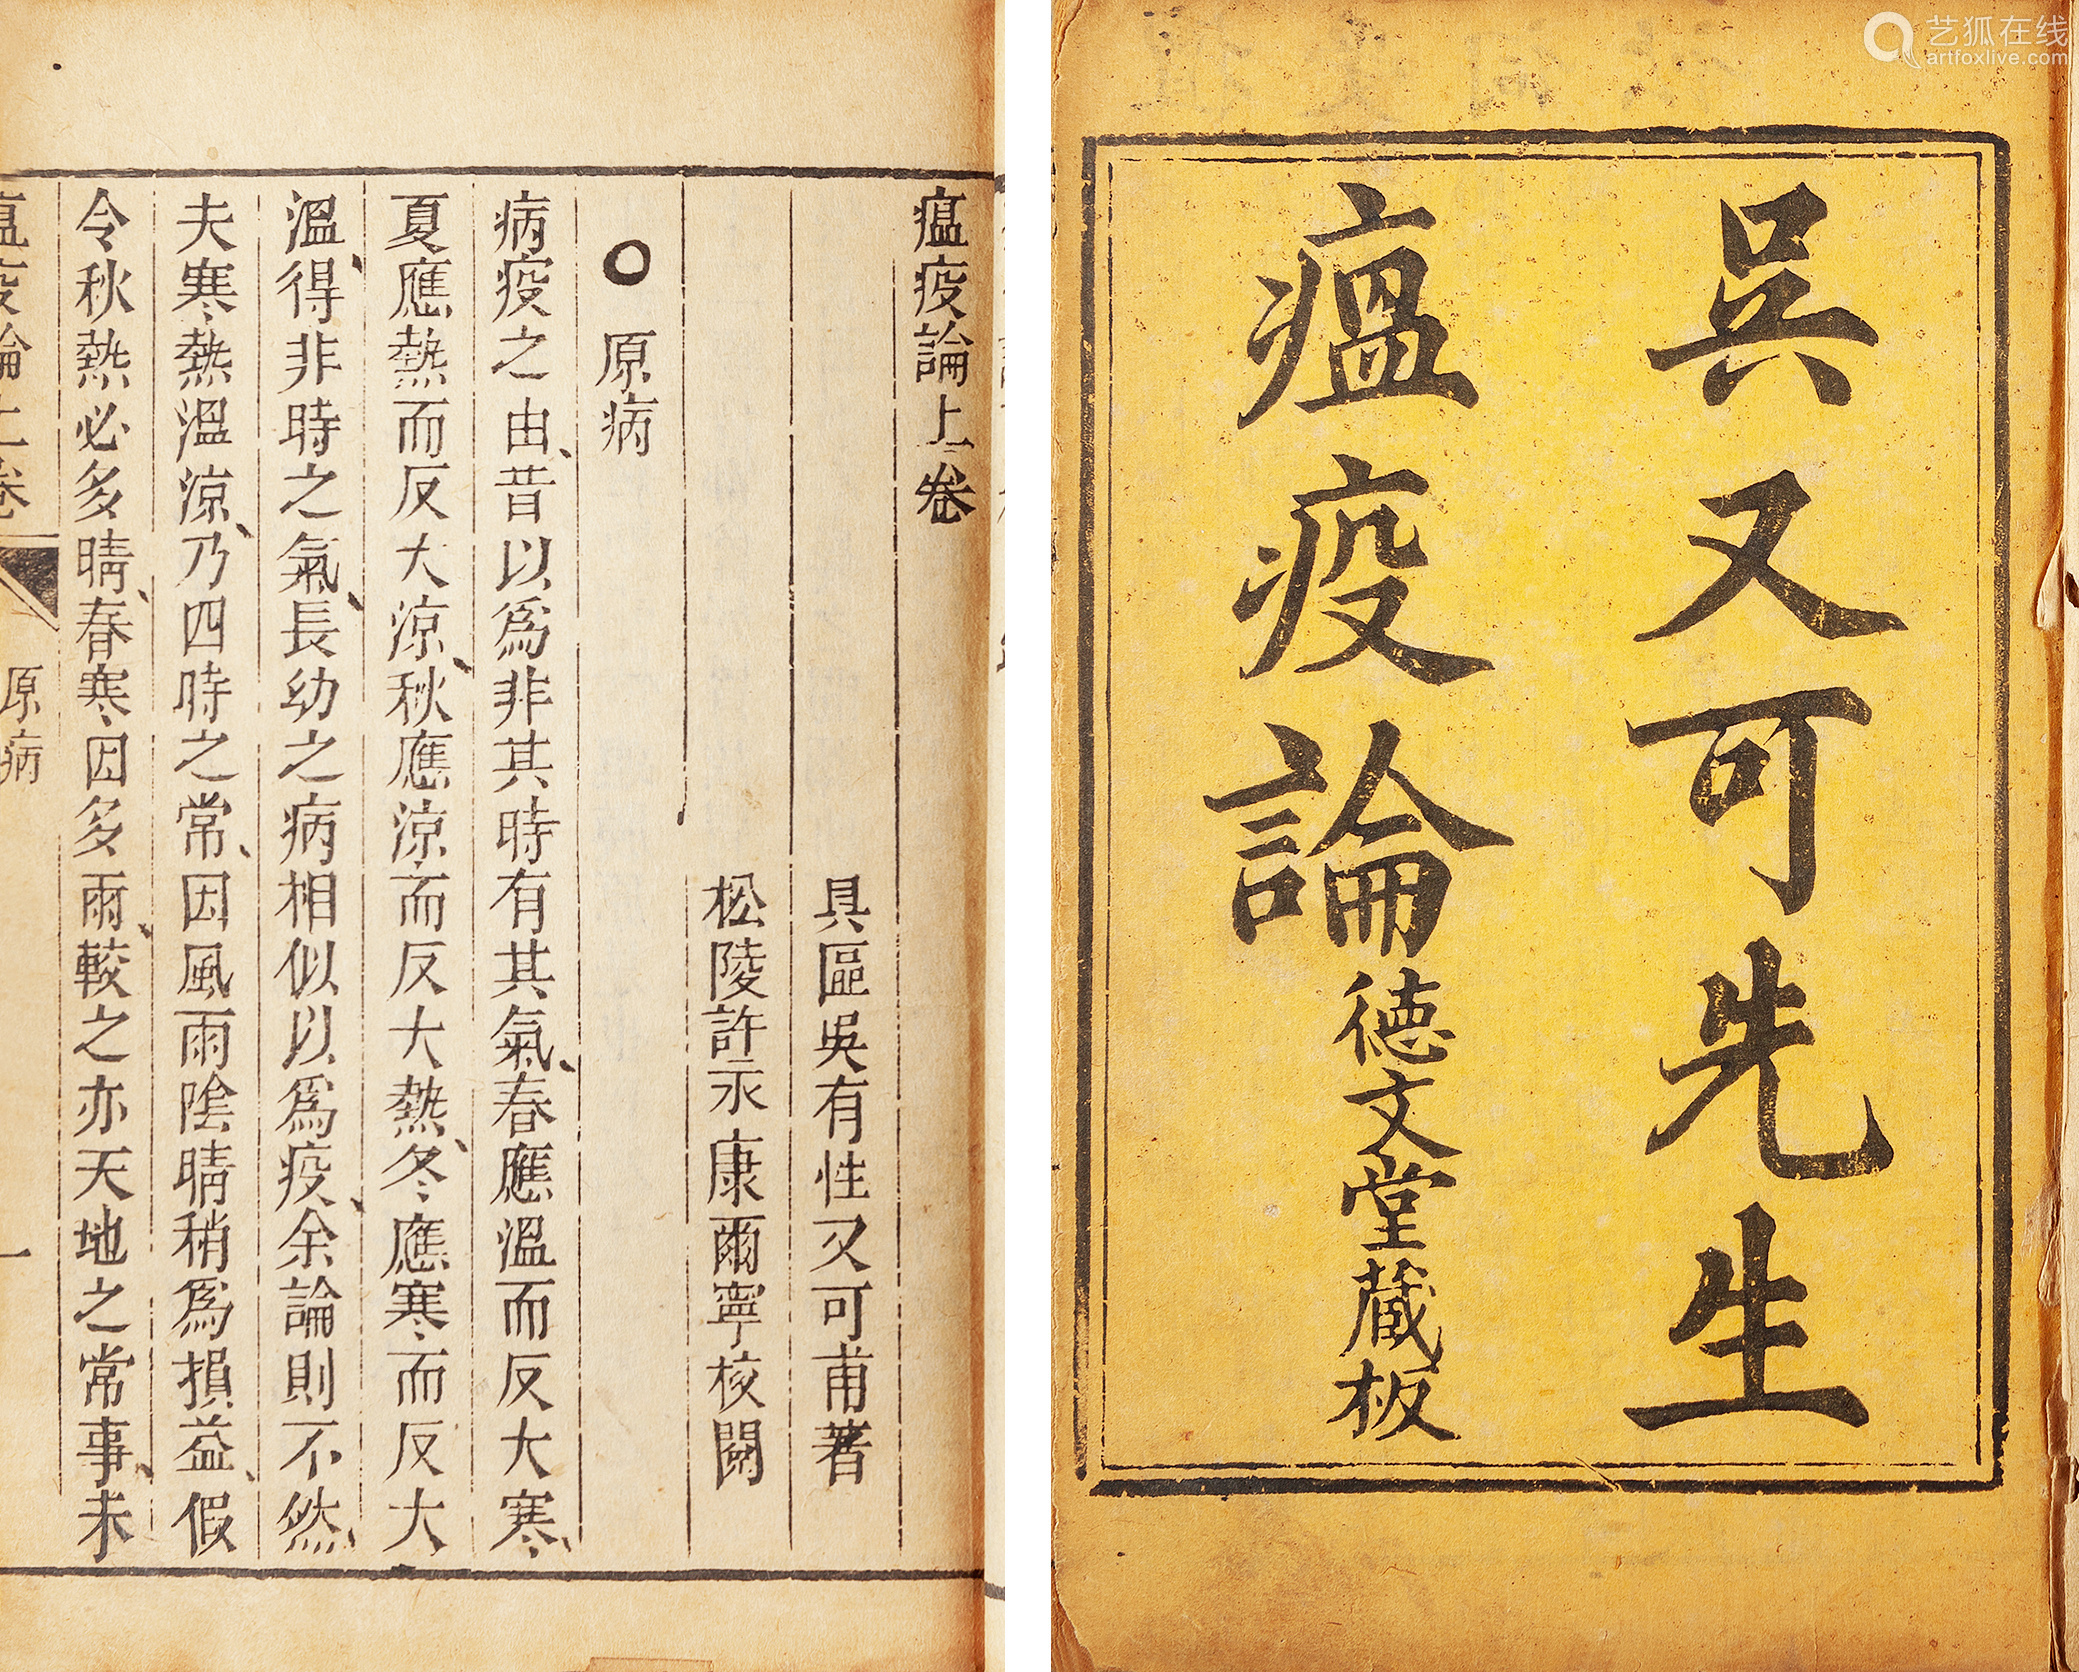 吳又可先生
瘟疫論
德文堂藏板
瘟疫論上卷
具區吳有性又可甫著
松陵許永康爾寧校閱
○原病
病疫之由、昔以爲非其時有其氣、春應溫而反大寒、
夏應熱而反大涼、秋應涼而反大熱、冬應寒而反大
溫、得非時之氣、長幼之病相似以爲疫、余論則不然、
夫寒熱溫涼、乃四時之常、因風雨陰晴稍爲損益、假
令秋熱必多晴、春寒因多雨、較之亦天地之常事、未
瘟疫論上卷
原病
一
艺狐在线
artfoxlive.com